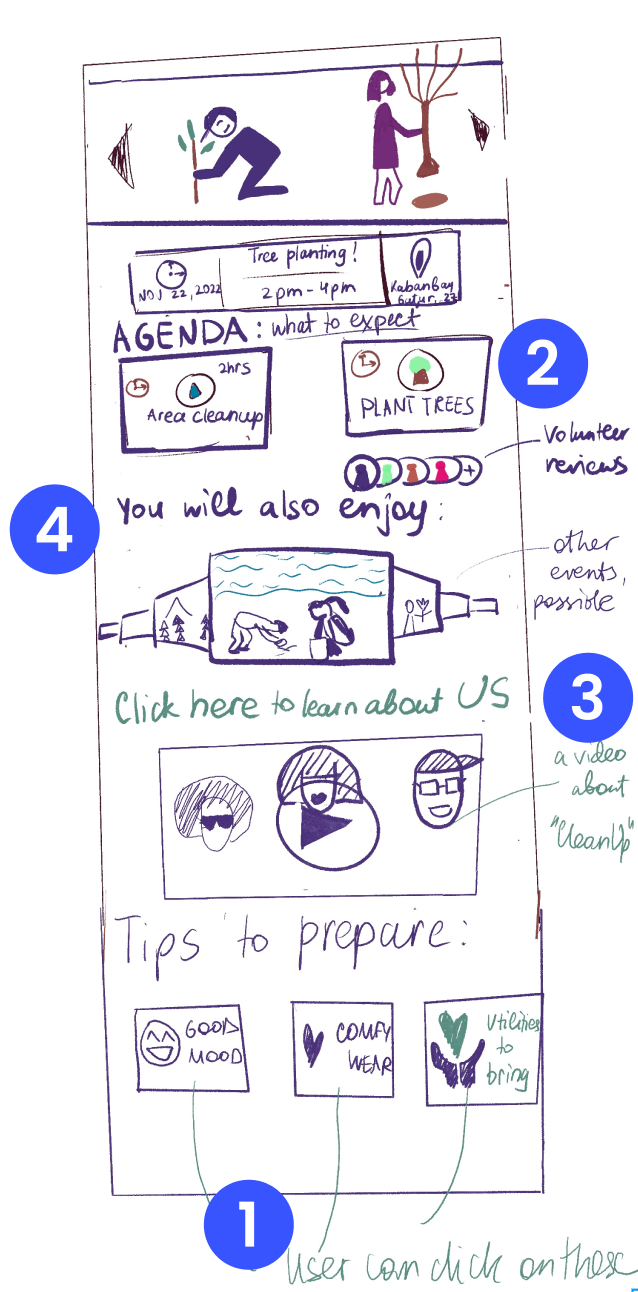 Tree planting!
NOV 22, 2022
2pm - 4pm
KabanBay
AGENDA: what to expect
2
2hrs
Area cleanup
PLANT TREES
+
Volunteer
reviews
4
You will also enjoy:
other
events,
possible
Click here to learn about US
3
a video
about
"CleanUp"
Tips to prepare:
GOOD
MOOD
COMFY
WEAR
Utilities
to
bring
1
User can click on these